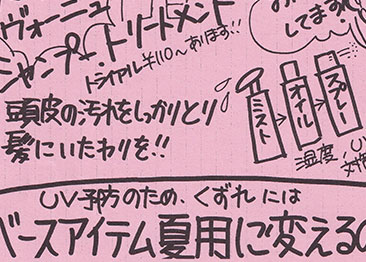 ヴォーニュ
シャンプー・トリートメント
トライアル¥110〜あります!!
してます
頭皮の汚れをしっかりとり
髪にいたわりを!!
ミスト→オイル→スプレー
湿度、UV
UV予防のため、くずれには
ベースアイテム夏用に変えるの